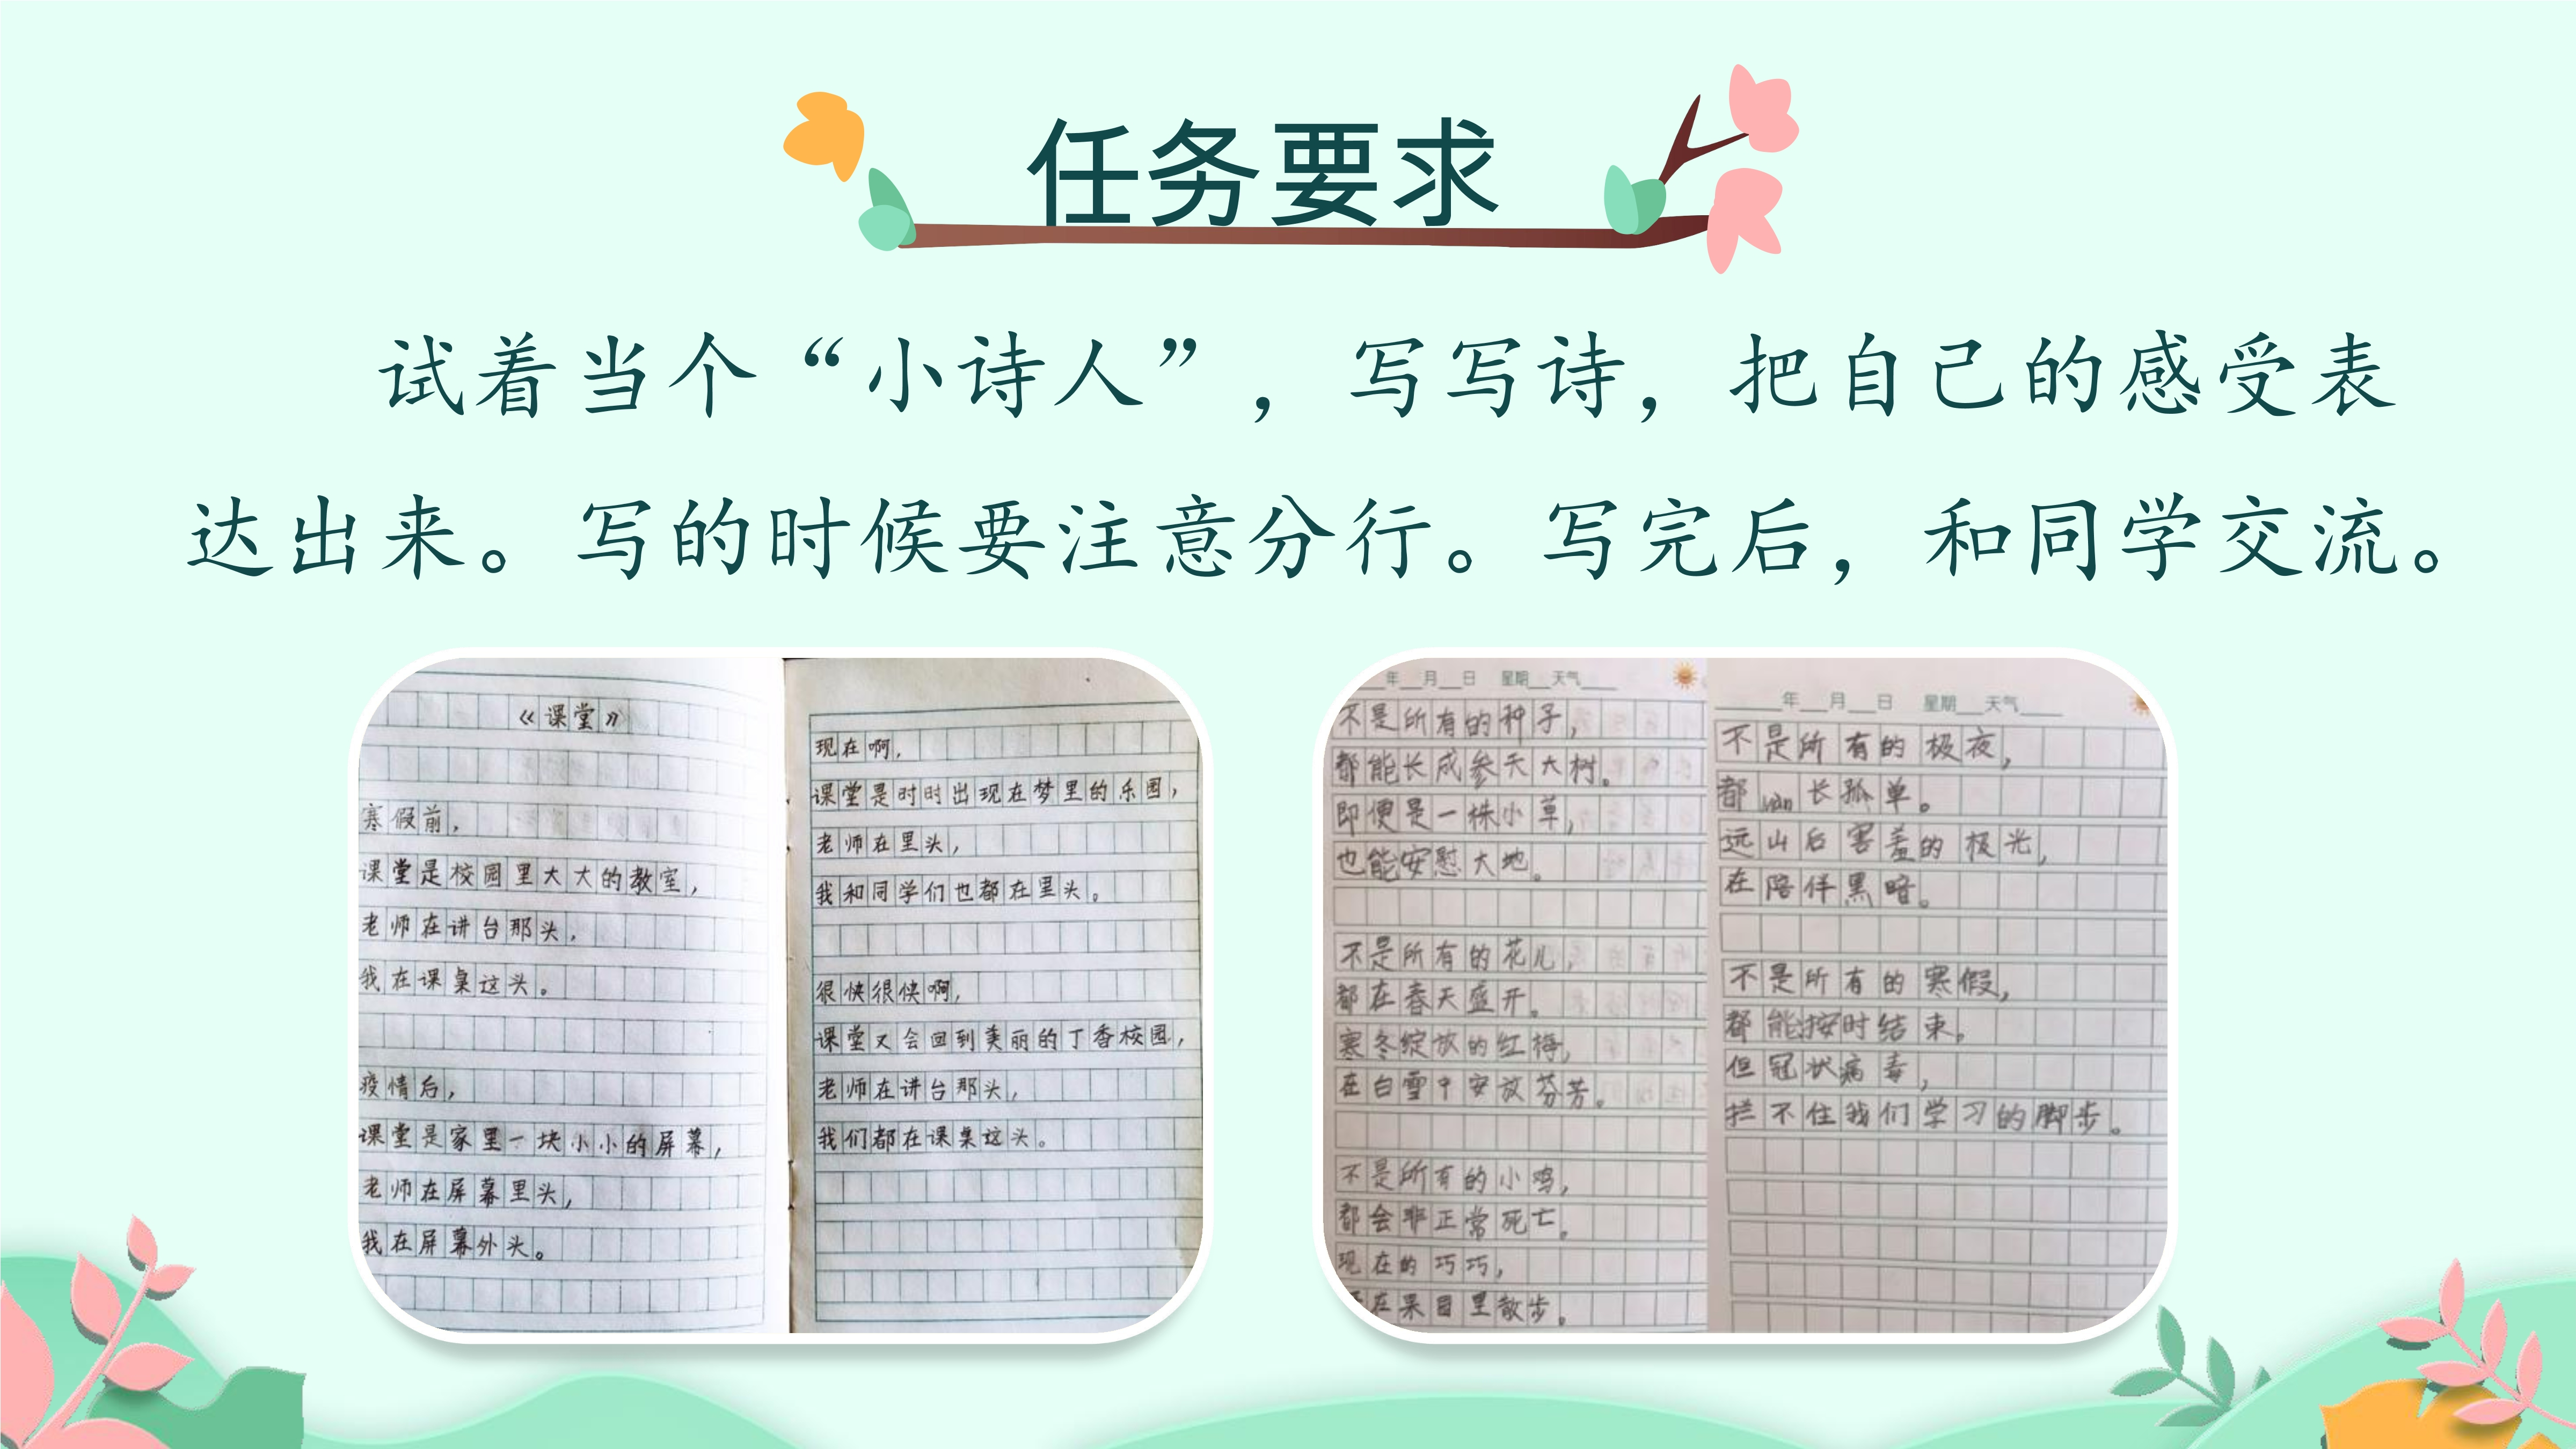 任务要求
试着当个“小诗人”，写写诗，把自己的感受表
达出来。写的时候要注意分行。写完后，和同学交流。
《课堂》
寒假前，
课堂是校园里大大的教室，
老师在讲台那头，
我在课桌这头。
疫情后，
课堂是家里一块小小的屏幕，
老师在屏幕里头，
我在屏幕外头。
现在啊，
课堂是时时出现在梦里的乐园，
老师在里头，
我和同学们也都在里头。
很快很快啊，
课堂又会回到美丽的丁香校园，
老师在讲台那头，
我们都在课桌这头。
年 月 日 星期 天气
不是所有的种子，
都能长成参天大树。
即便是一株小草，
也能安慰大地。
不是所有的花儿，
都在春天盛开。
寒冬绽放的红梅，
在白雪中安放芬芳。
不是所有的小鸡，
都会非正常死亡。
现在的巧巧，
在果园里散步。
年 月 日 星期 天气
不是所有的极夜，
都 màn 长孤单。
远山后害羞的极光，
在陪伴黑暗。
不是所有的寒假，
都能按时结束。
但冠状病毒，
拦不住我们学习的脚步。